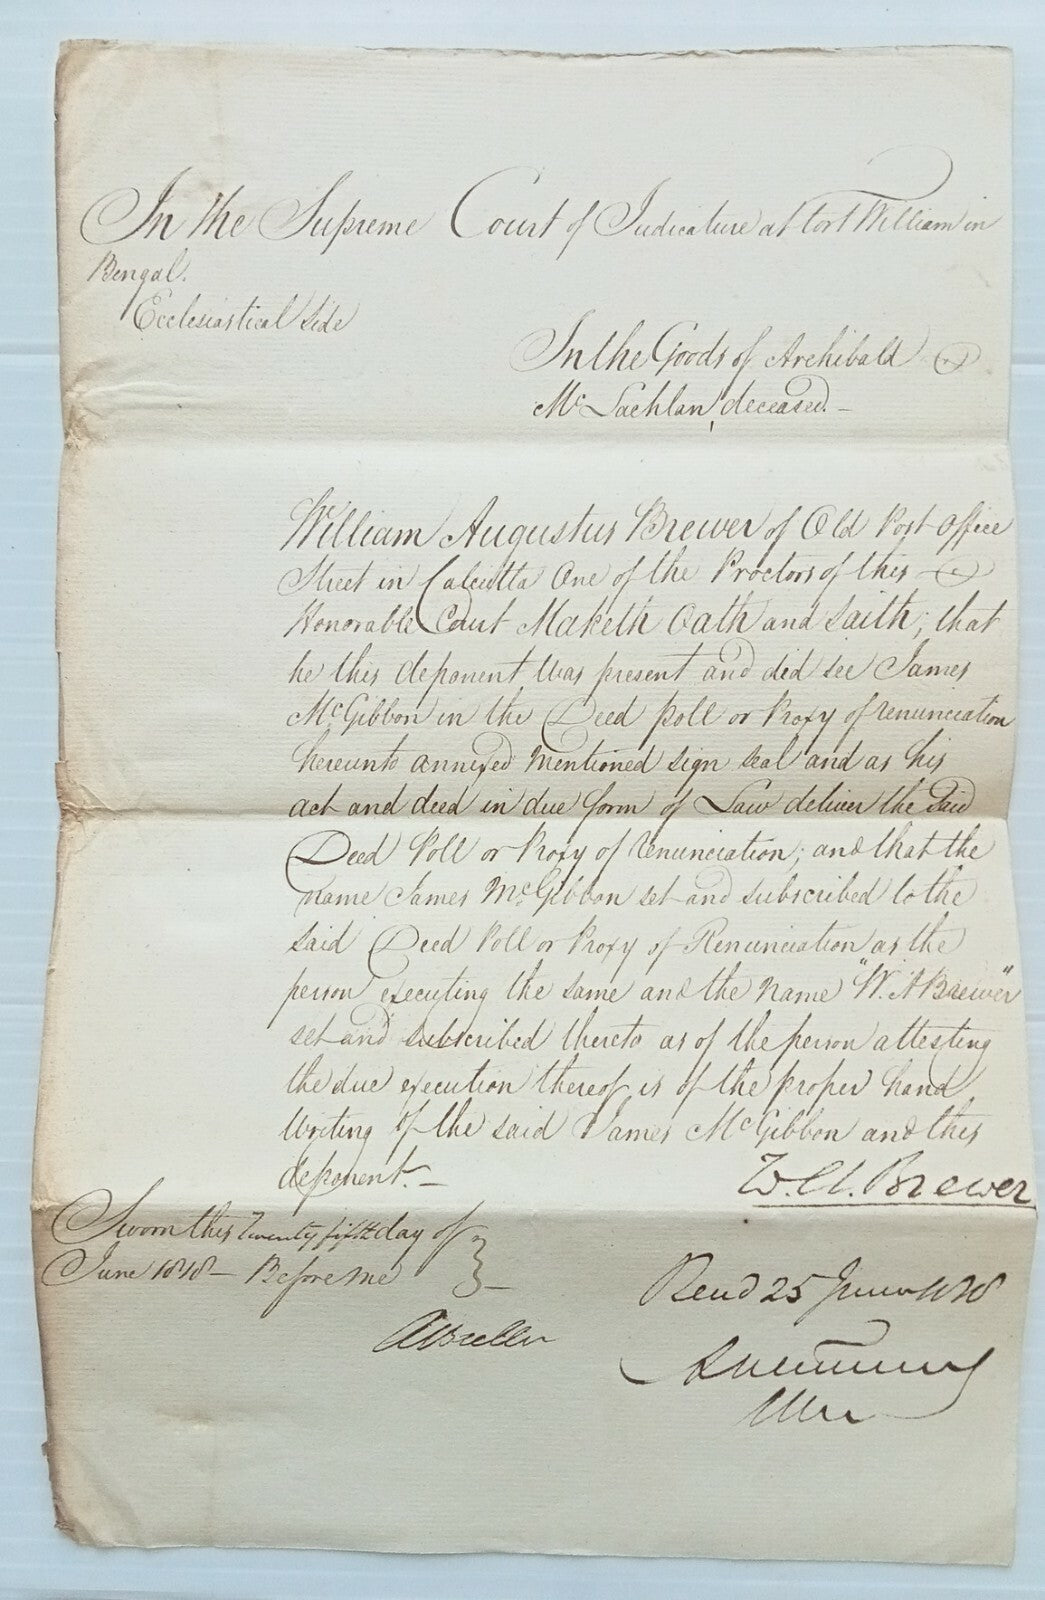 In the Supreme Court of Judicature at Fort William in
Bengal.
Ecclesiastical Side
In the Goods of Archibald
Mc Lachlan, deceased. –
William Augustus Brewer of Old Post Office
Street in Calcutta One of the Proctors of this
Honorable Court Maketh Oath and Saith; that
he this deponent was present and did see James
McGibbon in the Deed Poll or Proxy of renunciation
hereunto annexed Mentioned sign seal and as his
act and deed in due form of Law deliver the said
Deed Poll or Proxy of renunciation; and that the
name James McGibbon set and subscribed to the
said Deed Poll or Proxy of Renunciation as the
person executing the same and the Name "W. A Brewer"
set and subscribed thereto as of the person attesting
the due execution thereof is of the proper hand
Writing of the said James McGibbon and this
deponent. –
W. A. Brewer
Sworn this Twenty fifth day of
June 1818 – Before me
A Buller
Read 25 June 1818